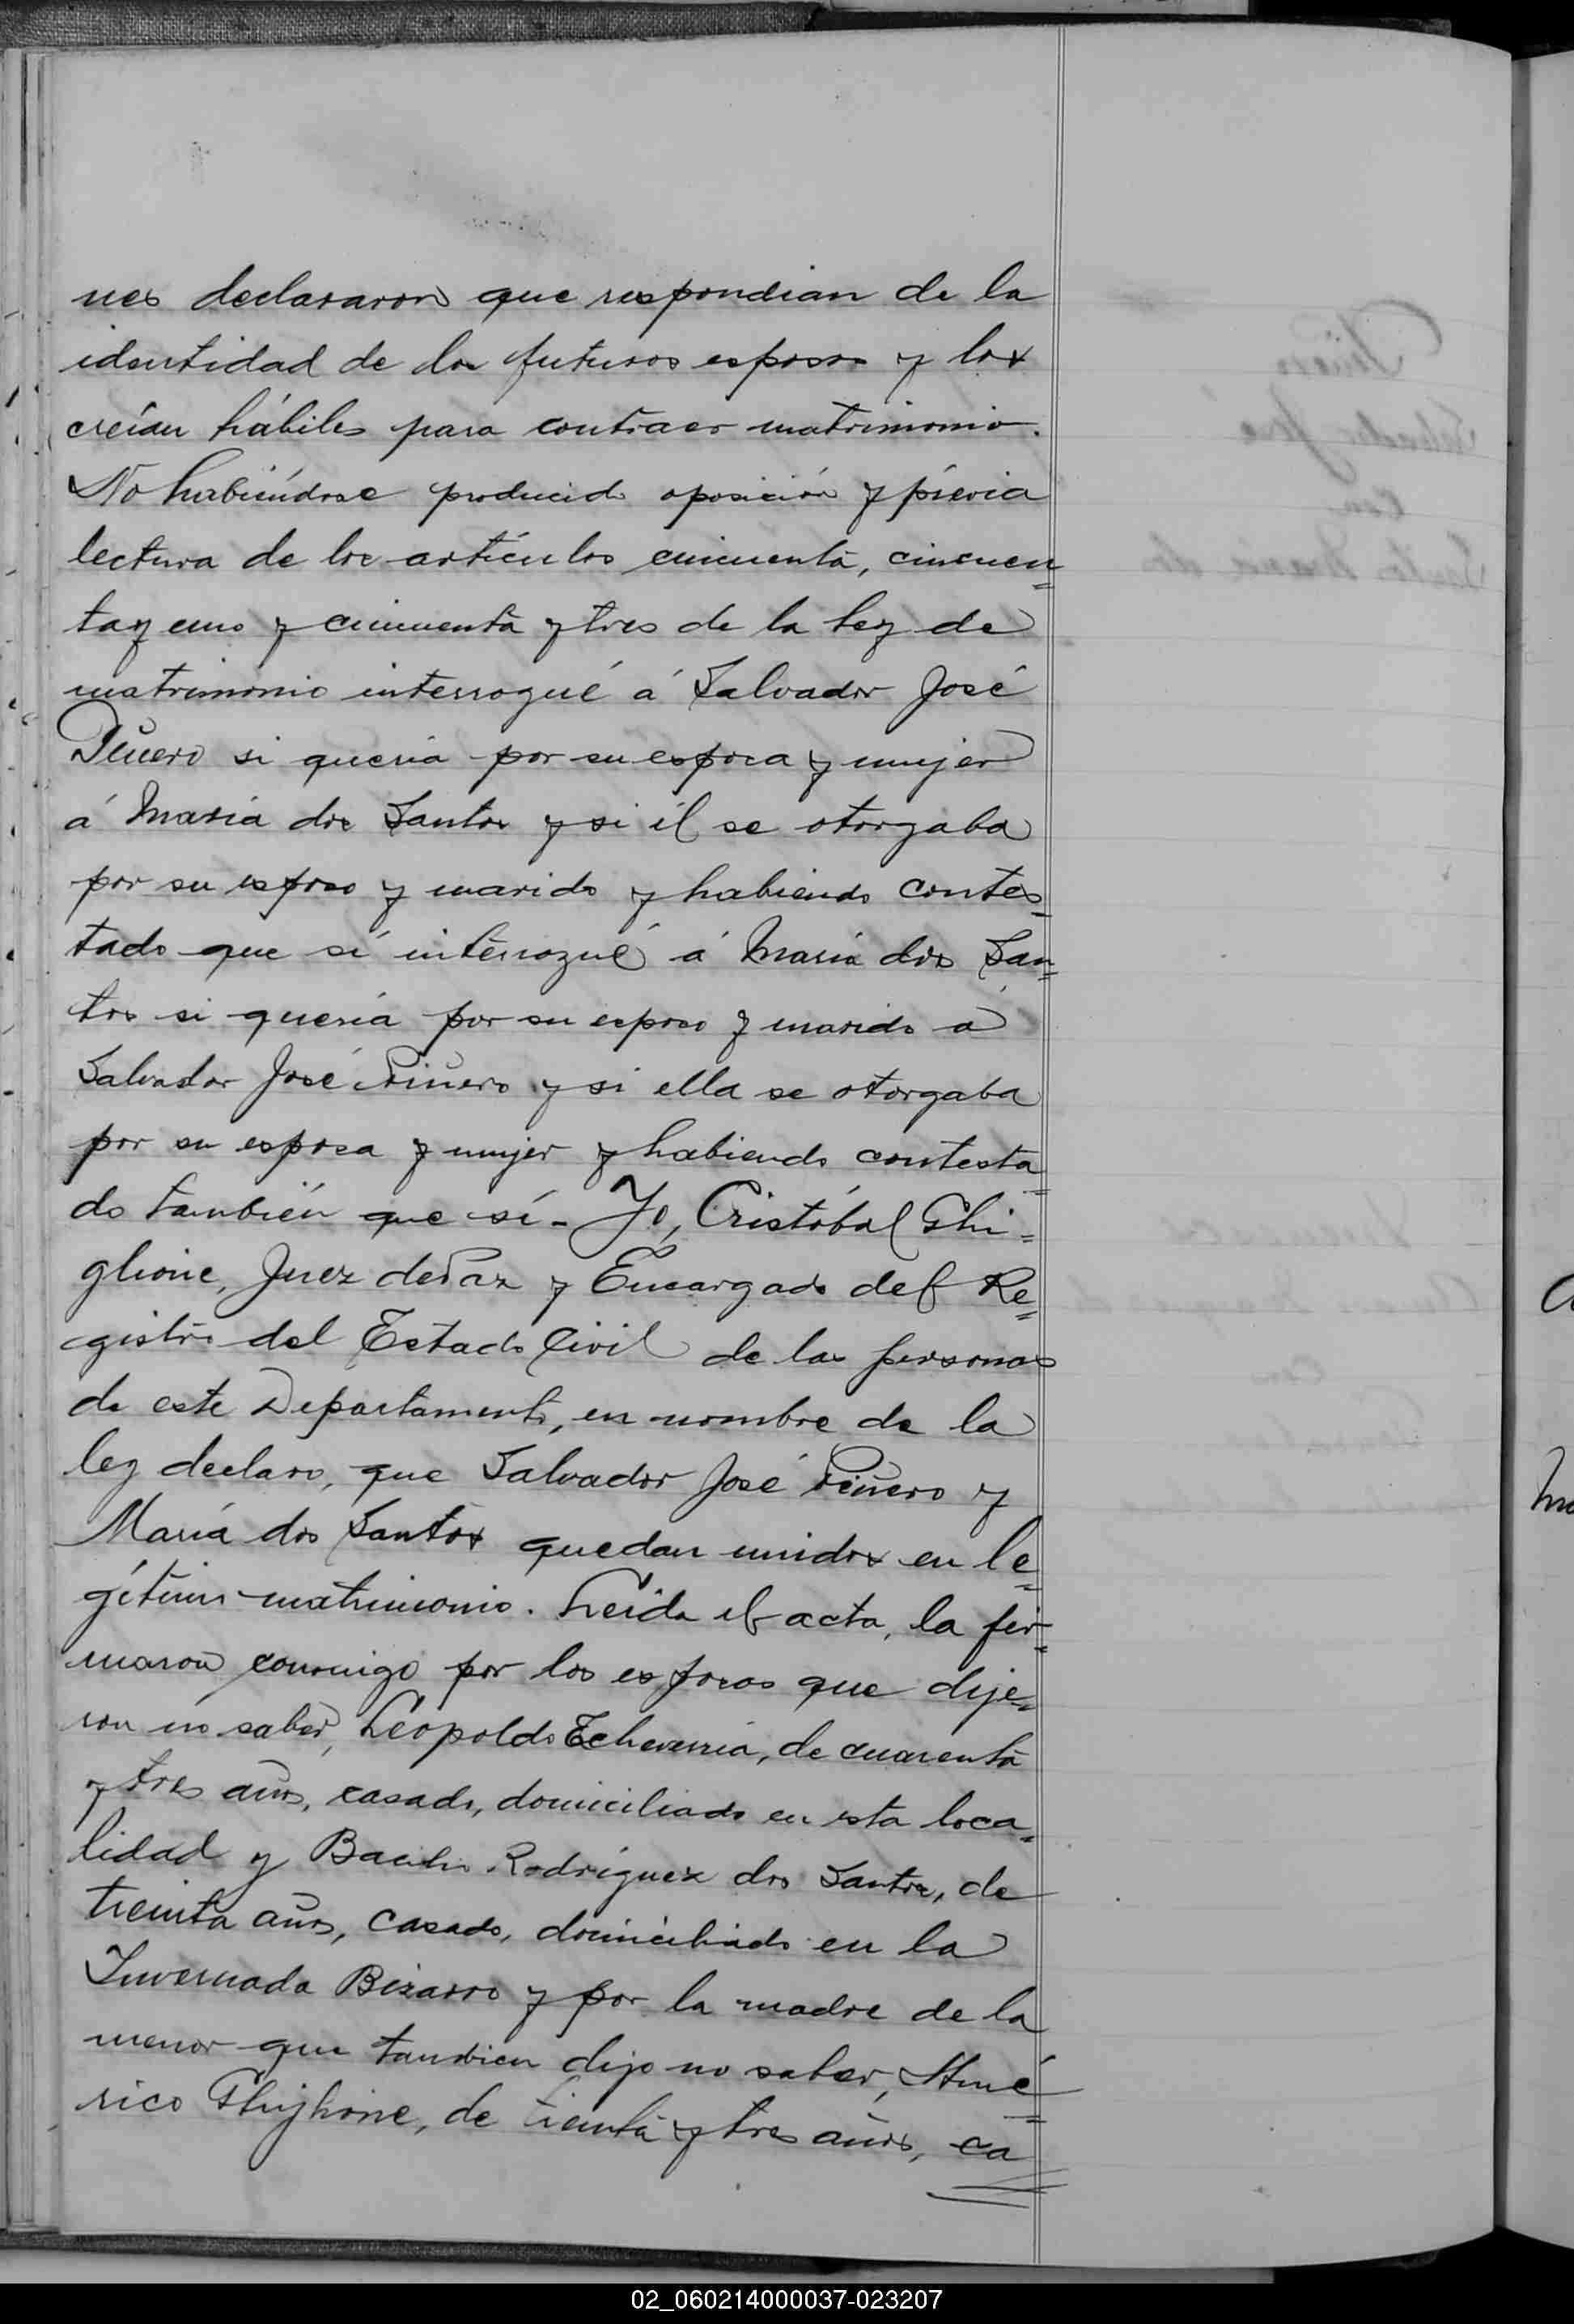 nes declararon que respondian de la
identidad de los futuros esposos y los
creían hábiles para contraer matrimonio.
No habiéndose producido oposición y prévia
lectura de los artículos cincuenta, cincuen=
ta y uno y cincuenta y tres de la ley de
matrimonio interrogué á Salvador José
Piñero si queria por su esposa y mujer
á Maria dos Santos y si él se otorgaba
por su esposo y marido y habiendo contes=
tado que sí interrogué á Maria dos San=
tos si quería por su esposo y marido á
Salvador José Piñero y si ella se otorgaba
por su esposa y mujer y habiendo contesta=
do también que sí - Yo, Cristóbal Ghi=
glione, Juez de Paz y Encargado del Re=
gistro del Estado Civil de las personas
de este Departamento, en nombre de la
ley declaro, que Salvador José Piñero y
María dos Santos quedan unidos en le=
gítimo matrimonio. Leida el acta, la fir=
maron conmigo por los esposos que dije=
ron no saber, Leopoldo Echeverria, de cuarenta
y tres años, casado, domiciliado en esta loca=
lidad y Basilio Rodríguez dos Santos, de
treinta años, casado, domiciliado en la
Invernada Bizarro y por la madre de la
menor que tambien dijo no saber, Amé=
rico Ghiglione, de treinta y tres años, ca=
02_060214000037-023207